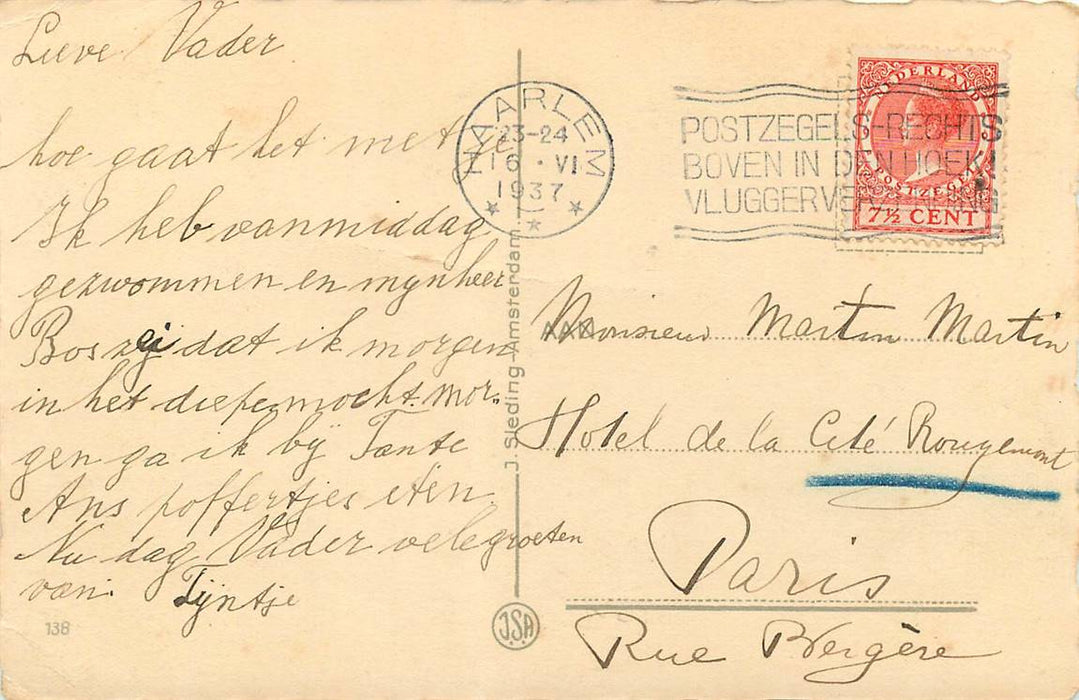 Lieve Vader
hoe gaat het met
Ik heb vanmiddag
gezwommen en mynheer
Bos zei dat ik morgen
in het diepe mocht. mor-
gen ga ik bij Tante
Ans poffertjes eten.
Nu dag Vader vele groeten
van. Tijntje
138
J. Sleding-Amsterdam.
J.S.A
HAARLEM
23-24
16 · VI
1937
POSTZEGELS-RECHTS
BOVEN IN DEN HOEK
VLUGGER
NEDERLAND
POSTZEGEL
7½ CENT
AAN
Monsieur Martin Martin
Hotel de la Cité Rougemont
Paris
Rue Bergère